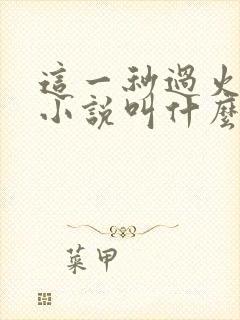 這一秒過火
小說叫什麼
菜甲